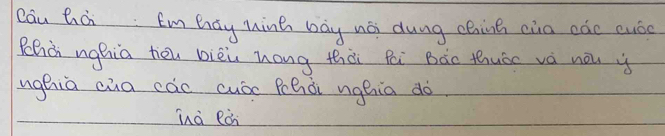 Câu hỏi : Em hãy trình bày nội dung chính của các cuộc
khởi nghĩa tiêu biểu trong thời kì Bắc thuộc và nêu ý
nghĩa của các cuộc khởi nghĩa đó.
Trả lời